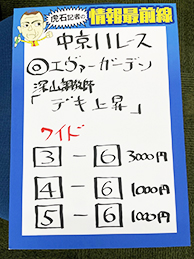 虎石記者の
情報最前線
中京11レース
◎エヴァーガーデン
深山調教師
「デキ上昇」
ワイド
3-6 3000円
4-6 1000円
5-6 1000円